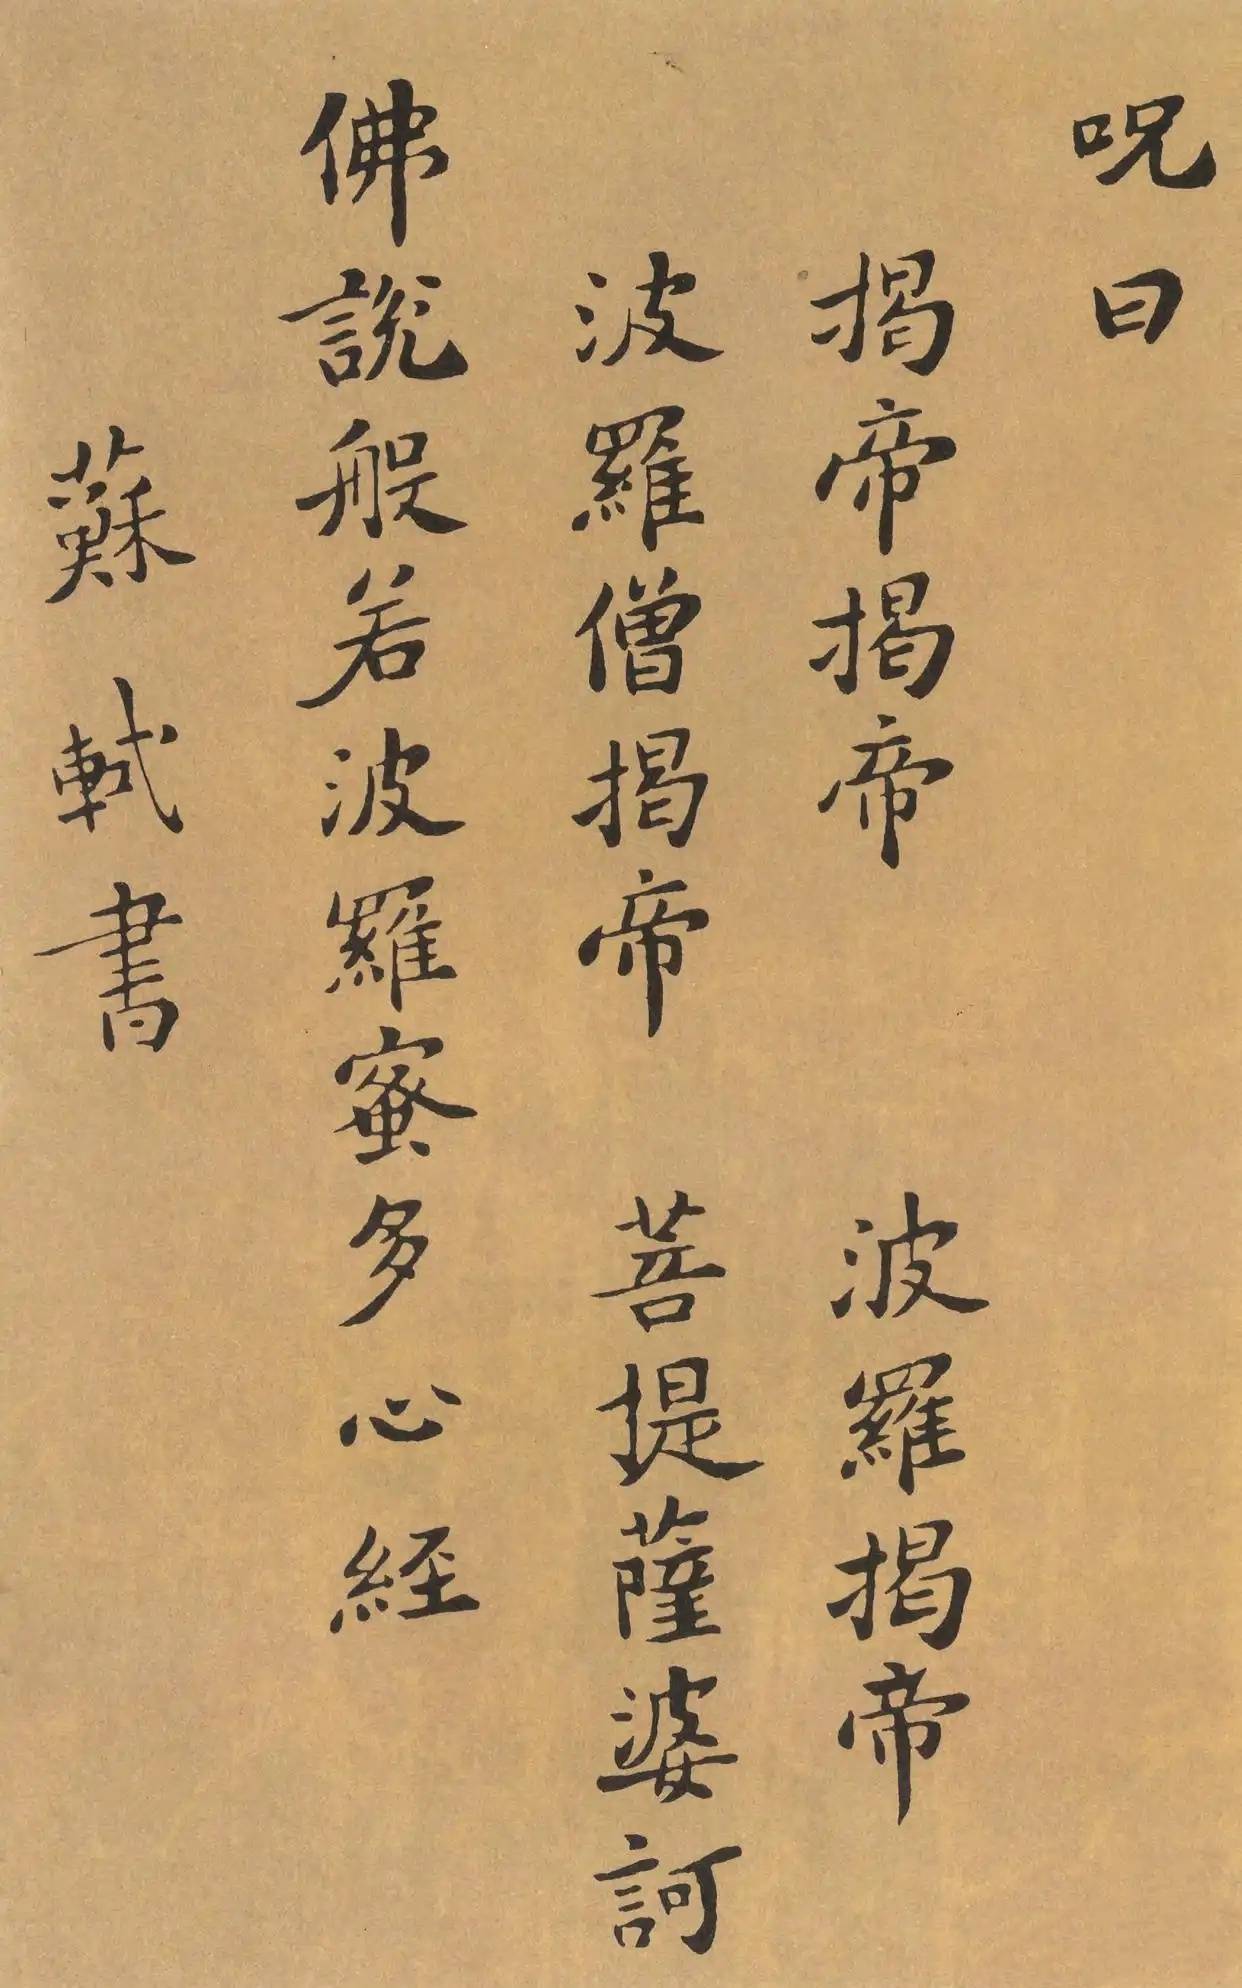 呪曰
揭帝揭帝 波羅揭帝
波羅僧揭帝 菩提薩婆訶
佛說般若波羅蜜多心経
蘇軾書